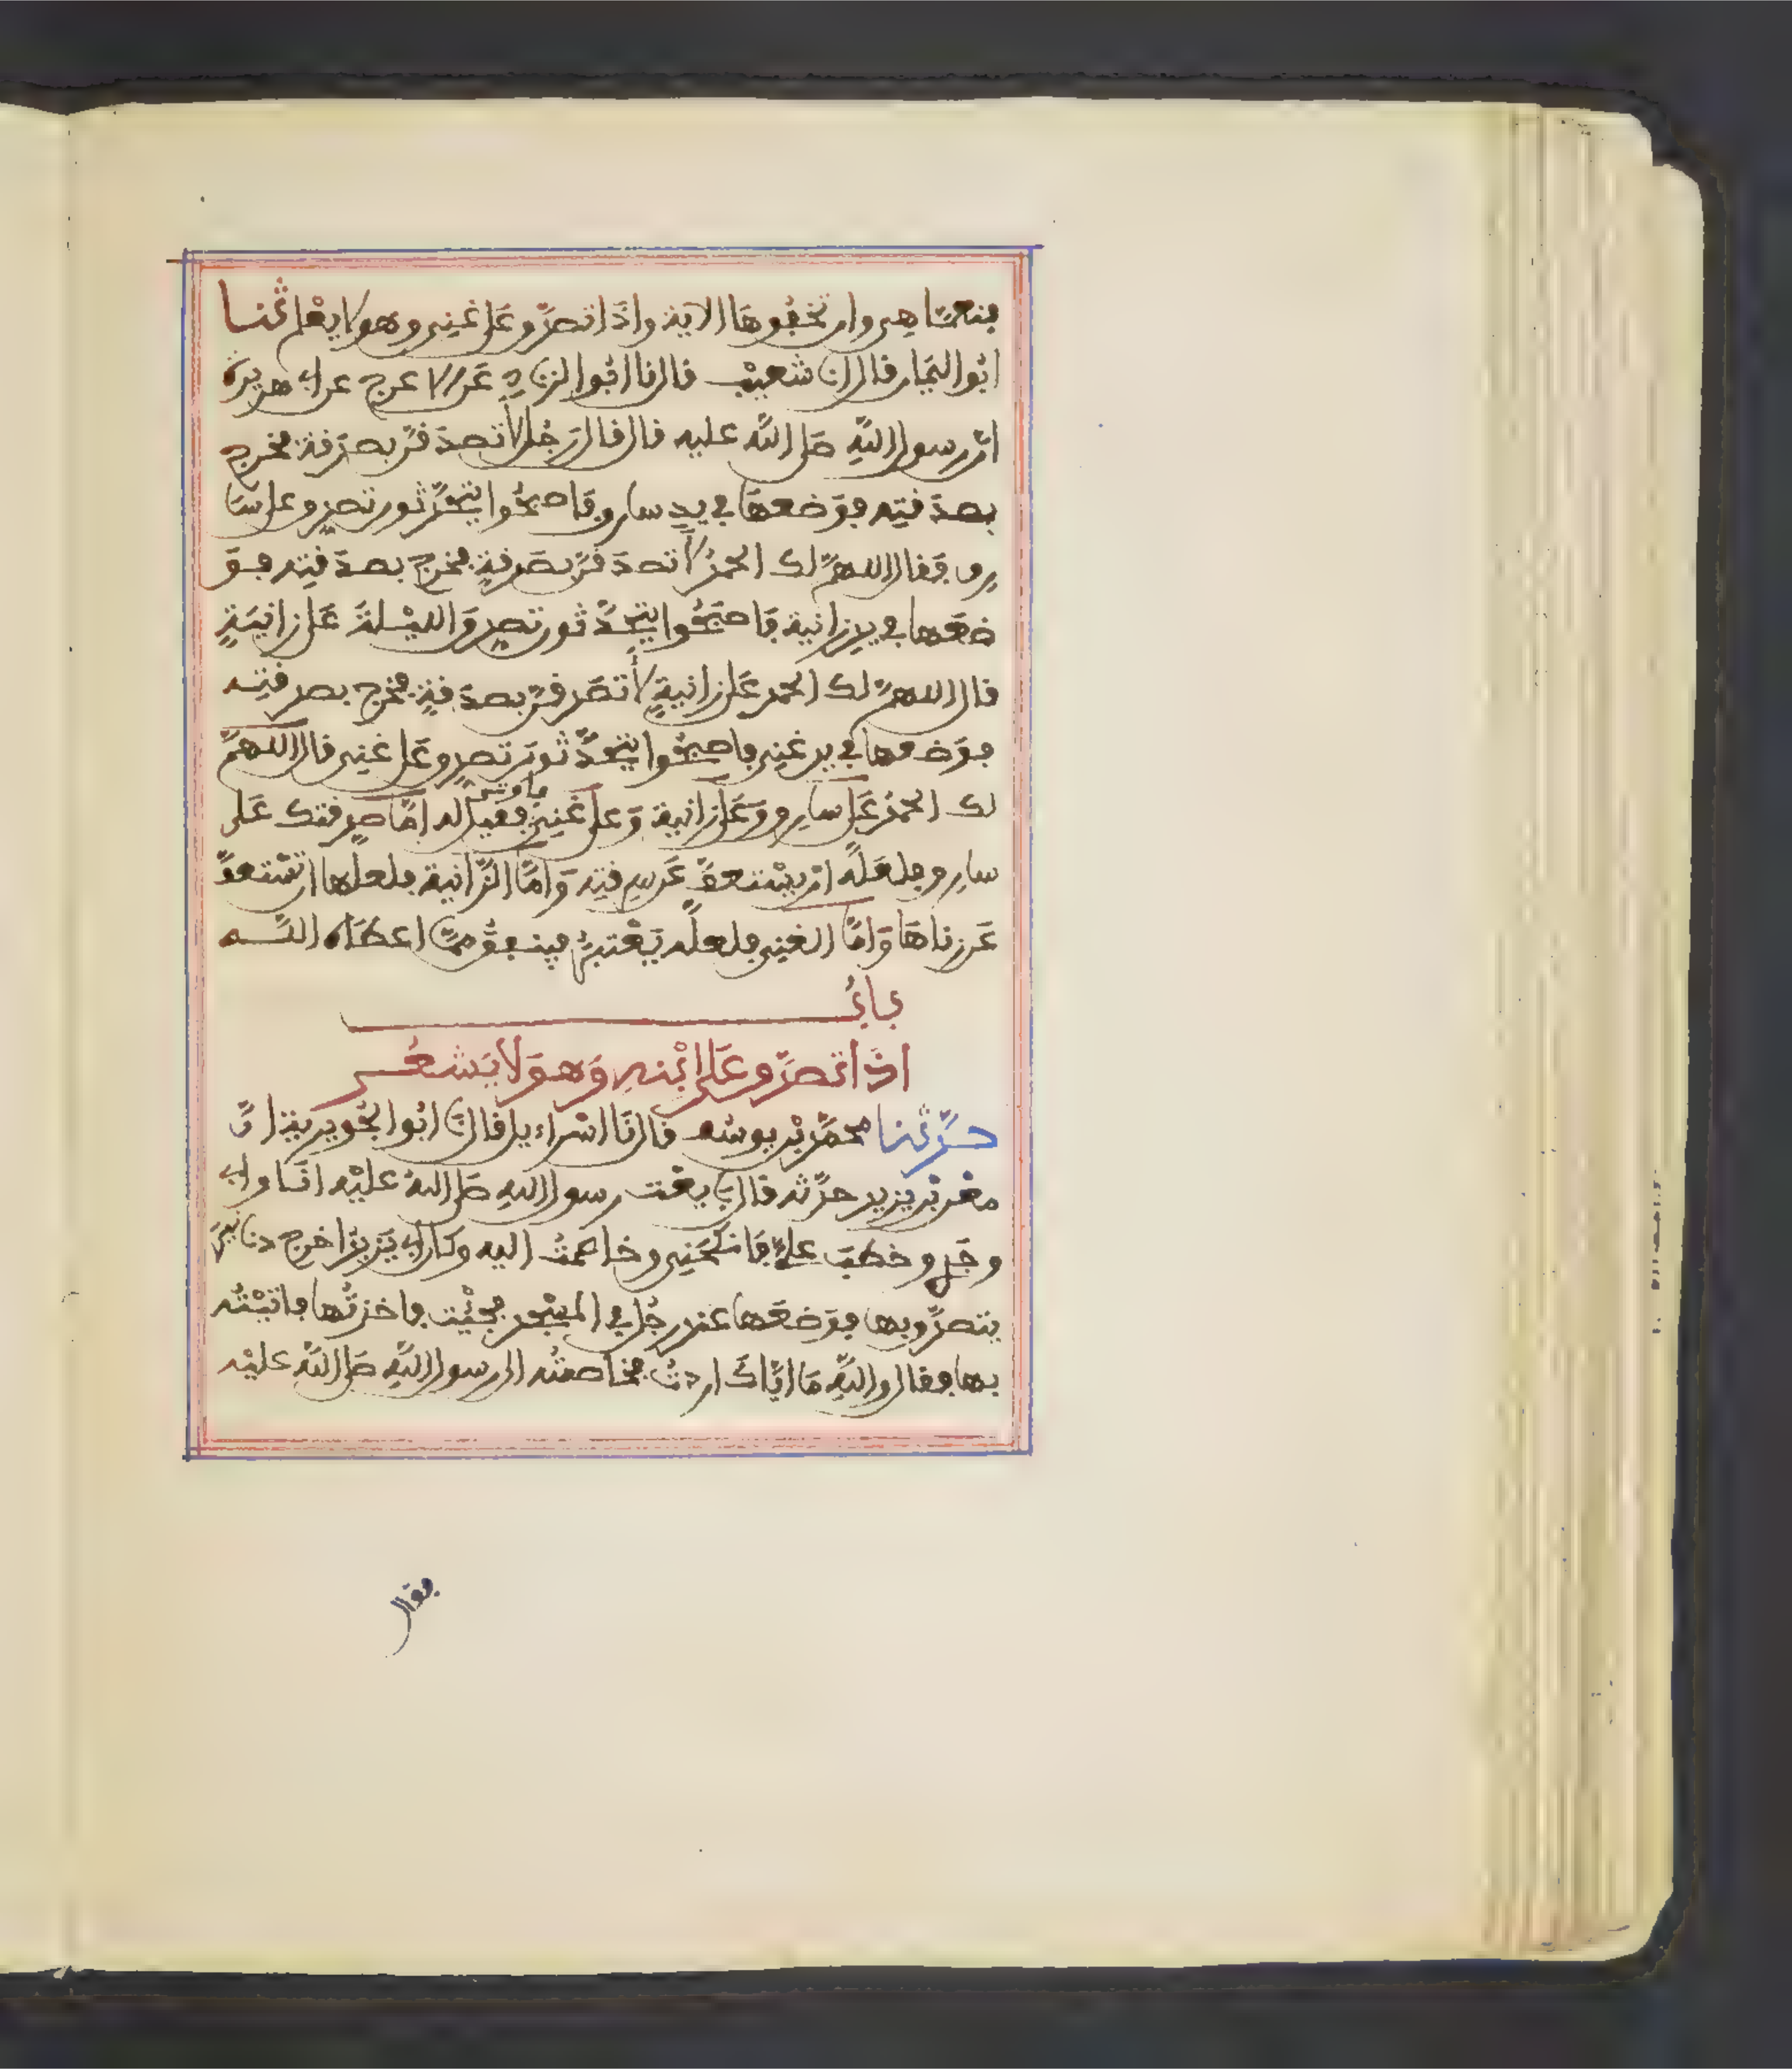 فنعما هي وان تخفوها الاية واذا تصدق على غني وهو لا يعلم ثنا
ابو اليمان قال انا شعيب قال نا ابو الزناد عن الاعرج عن ابي هريرة
ان رسول الله صلى الله عليه قال قال رجل لاتصدقن بصدقة فخرج
بصدقته فوضعها في يد سارق فاصبحوا يتحدثون تصدق على سا
رق فقال اللهم لك الحمد لاتصدقن بصدقة فخرج بصدقته فو
ضعها في يد زانية فاصبحوا يتحدثون تصدق الليلة على زانية
قال اللهم لك الحمد على زانية لاتصدقن بصدقة فخرج بصدقته
فوضعها في يد غني فاصبحوا يتحدثون تصدق على غني قال اللهم
لك الحمد على سارق وعلى زانية وعلى غني فاوتي فقيل له اما صدقتك على
سارق فلعله ان يستعف عن سرقته واما الزانية فلعلها ان تستعف
عن زناها واما الغني فلعله يعتبر فينفق مما اعطاه الله
باب
اذا تصدق على ابنه وهو لا يشعر
حدثنا محمد بن يوسف قال نا اسراءيل قال نا ابو الجويرية ان
معن بن يزيد حدثه قال بايعت رسول الله صلى الله عليه انا وابي
وجدي وخطب علي فانكحني وخاصمت اليه وكان ابي يزيد اخرج دنانير
يتصدق بها فوضعها عند رجل في المسجد فجئت فاخذتها فاتيته
بها فقال والله ما اياك اردت فخاصمته الى رسول الله صلى الله عليه
فقال